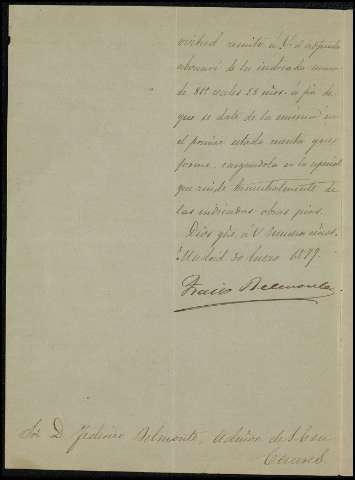 virtud remito á V. el adjunto
abonaré de la indicada suma
de 811 reales 25 mrs. á fin de
que se date de la misma en
el primer estado cuenta que
forme, cargandola en la especial
que rinde trimestralmente de
las indicadas obras pias.
Dios gue. á V. muchos años.
Madrid 30 Enero 1879.
Belmonte
Sor. D. Federico Belmonte, Admor. de